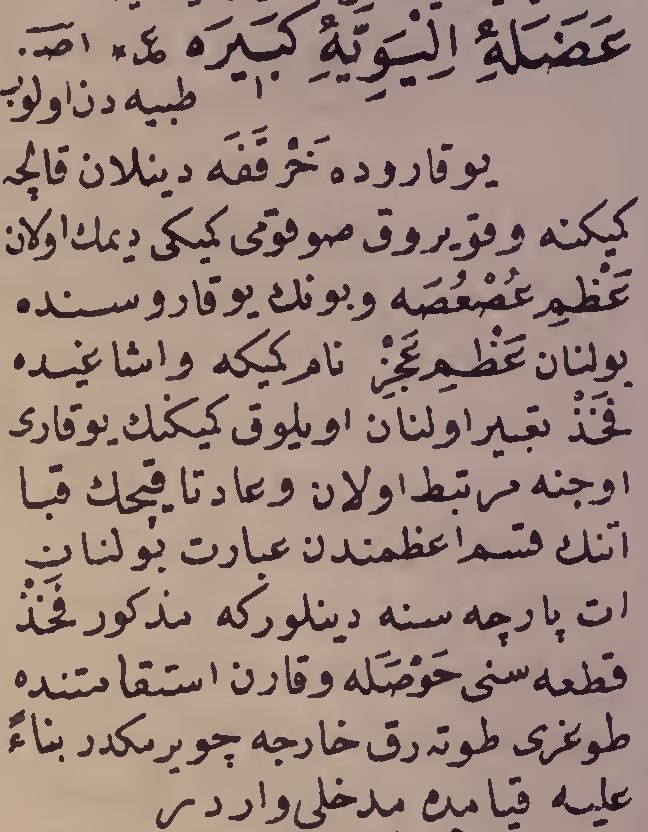 عَضَلَهُٔ اِلْیَوِیَّهُٔ کَبَیرَه ع* اصـ.
طبیه دن اولوب
یوقاروده خَرْقَفَه دینلان قالچه
کمیکنه و قویروق صوقومی کمیکی دیمك اولان
عَظْمِ عُصْعُصَه و بونك یوقاروسنده
بولنان عَظْمِ عَجُزِ نام کمیکه و اشاغیده
فَخَذْ تعبیر اولنان اویلوق کمیکنك یوقاری
اوجنه مرتبط اولان و عادتا قیچك قبا
اتنك قسم اعظمندن عبارت بولنان
ات پارچه سنه دینلورکه مذکور فَخَذْ
قطعه سنی حَوْصَله و قارن استقامتنده
طوغری طوته رق خارجه چویرمکدر بناءً
علیه قیامده مدخلی واردر